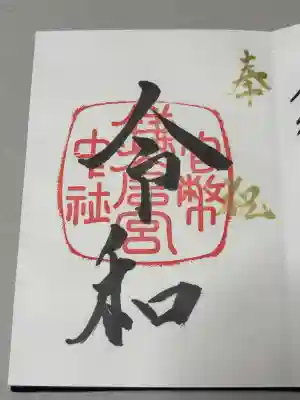 奉拝
令和
官幣
鎌倉宮
中社